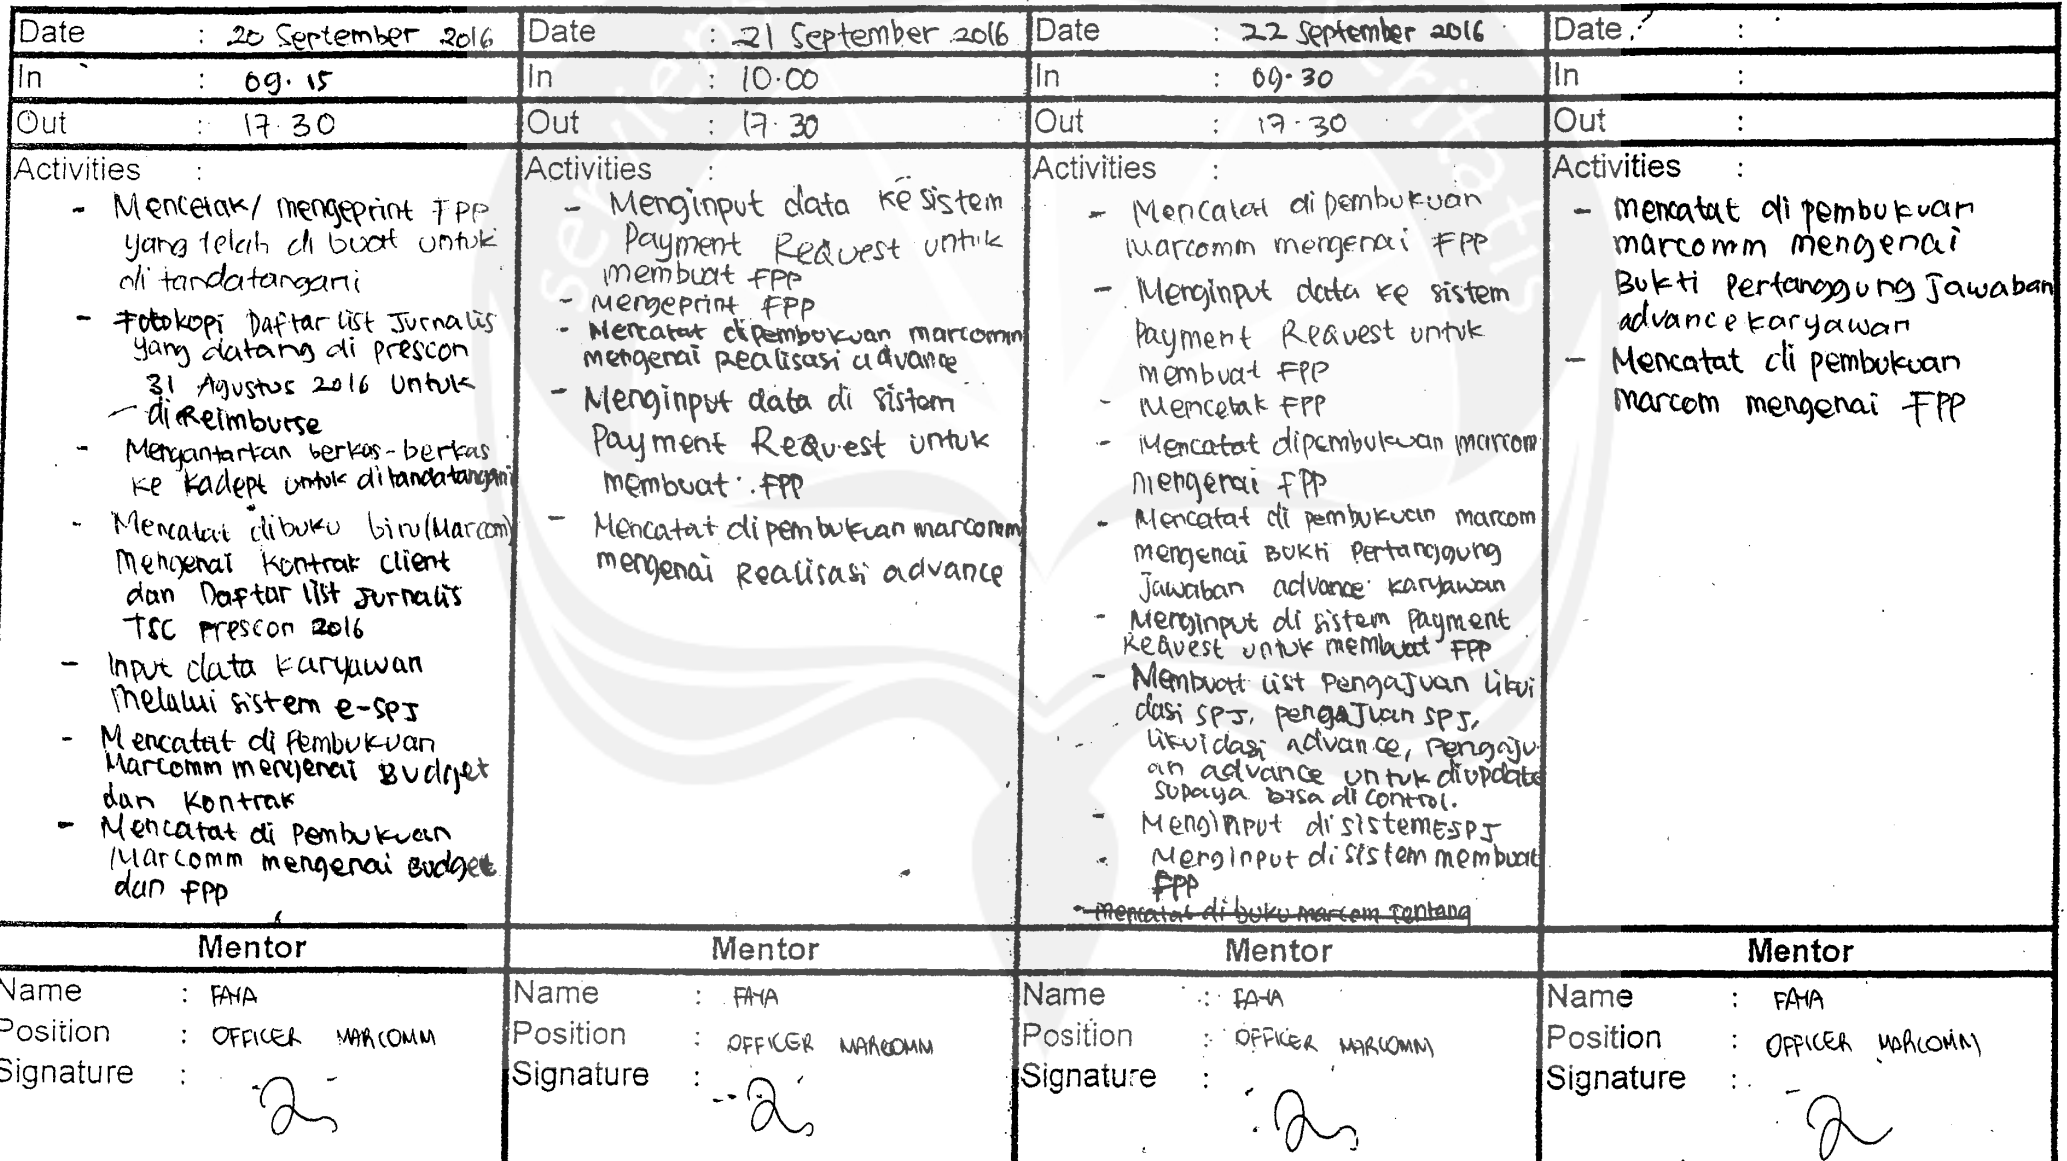 Date : 20 September 2016
In : 09.15
Out : 17.30
Activities :
- Mencetak/ mengeprint FPP
yang telah di buat untuk
di tandatangani
- Fotokopi Daftar list Jurnalis
yang datang di prescon
31 Agustus 2016 untuk
di Reimburse
- Mengantarkan berkas-berkas
ke Kadept untuk ditandatangani
- Mencatat dibuku biru (Marcom)
mengenai kontrak client
dan Daftar list jurnalis
TSC prescon 2016
- Input data karyawan
melalui sistem e-SPJ
- Mencatat di Pembukuan
Marcomm mengenai Budget
dan Kontrak
- Mencatat di Pembukuan
Marcomm mengenai Budget
dan FPP
Mentor
Name : FAYA
Position : OFFICER MARCOMM
Signature :
Date : 21 September 2016
In : 10.00
Out : 17.30
Activities :
- Menginput data ke sistem
Payment Request untuk
membuat FPP
- Mengeprint FPP
- Mencatat dipembukuan marcomm
mengenai Realisasi advance
- Menginput data di sistem
Payment Request untuk
membuat FPP
- Mencatat dipembukuan marcomm
mengenai Realisasi advance
Mentor
Name : FAYA
Position : OFFICER MARCOMM
Signature :
Date : 22 September 2016
In : 09.30
Out : 17.30
Activities :
- Mencatat di pembukuan
Marcomm mengenai FPP
- Menginput data ke sistem
Payment Request untuk
membuat FPP
- Mencetak FPP
- Mencatat dipembukuan marcom
mengenai FPP
- Mencatat di pembukuan marcom
mengenai Bukti Pertanggung
jawaban advance karyawan
- Menginput di sistem Payment
Request untuk membuat FPP
- Membuat list Pengajuan likui
dasi SPJ, pengajuan SPJ,
likuidasi advance, pengaju
an advance untuk diupdate
supaya bisa di control.
- Menginput di sistem ESPJ
- Menginput di sistem membuat
FPP
- mencatat di buku marcom tentang
Mentor
Name : FAYA
Position : OFFICER MARCOMM
Signature :
Date :
In :
Out :
Activities :
- mencatat di pembukuan
marcomm mengenai
Bukti Pertanggung Jawaban
advance karyawan
- Mencatat di pembukuan
marcom mengenai FPP
Mentor
Name : FAYA
Position : OFFICER MARCOMM
Signature :